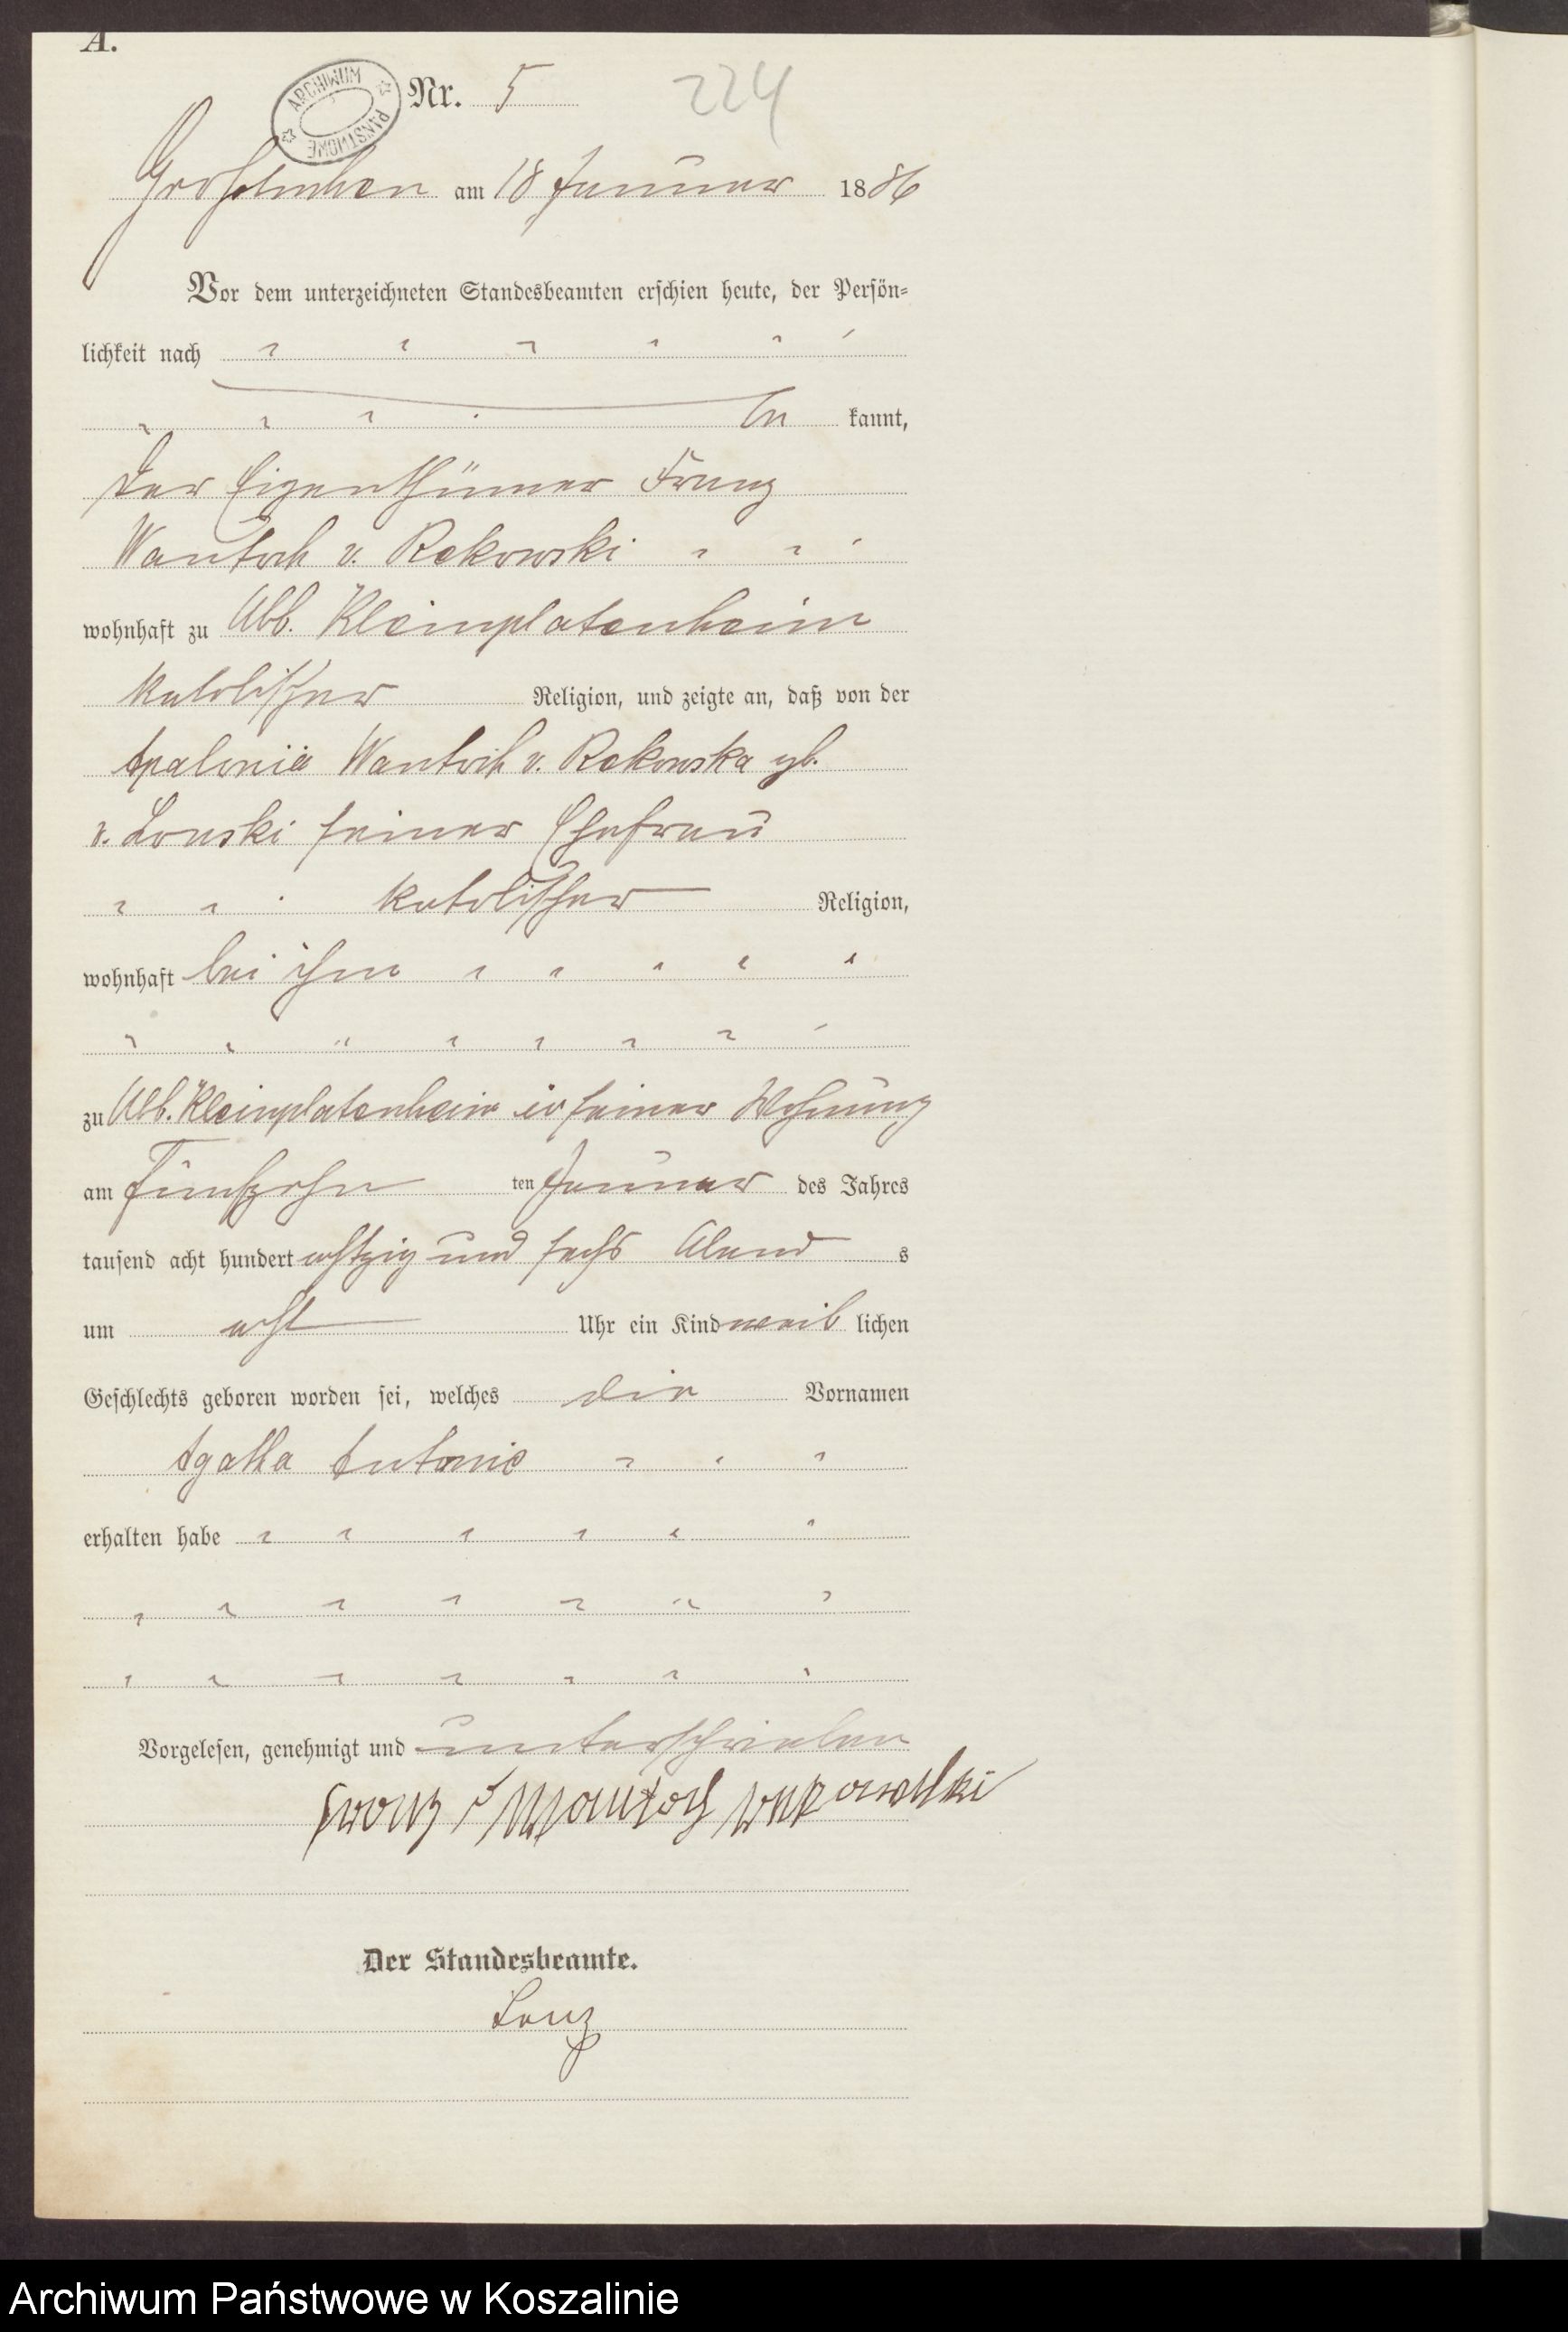 A.
ARCHIWUM PAŃSTWOWE
Nr. 5
224
am 18 Januar 1886
Vor dem unterzeichneten Standesbeamten erschien heute, der Persön=
lichkeit nach
be kannt,
der Eigenthümer Franz
Wantoch v. Rekowski
wohnhaft zu Abb. Kleinplatenheim
katolischer Religion, und zeigte an, daß von der
Apalonia Wantoch v. Rekowska gb.
v. Lonski seiner Ehefrau
katolischer Religion,
wohnhaft bei ihm
zu Abb. Kleinplatenheim in seiner Wohnung
am fünfzehn ten Januar des Jahres
tausend acht hundert achtzig und sechs Abend s
um acht Uhr ein Kind weib lichen
Geschlechts geboren worden sei, welches die Vornamen
Agatha Antonie
erhalten habe
Vorgelesen, genehmigt und unterschrieben
Franz v Wantoch
Der Standesbeamte.
Lenz
Archiwum Państwowe w Koszalinie